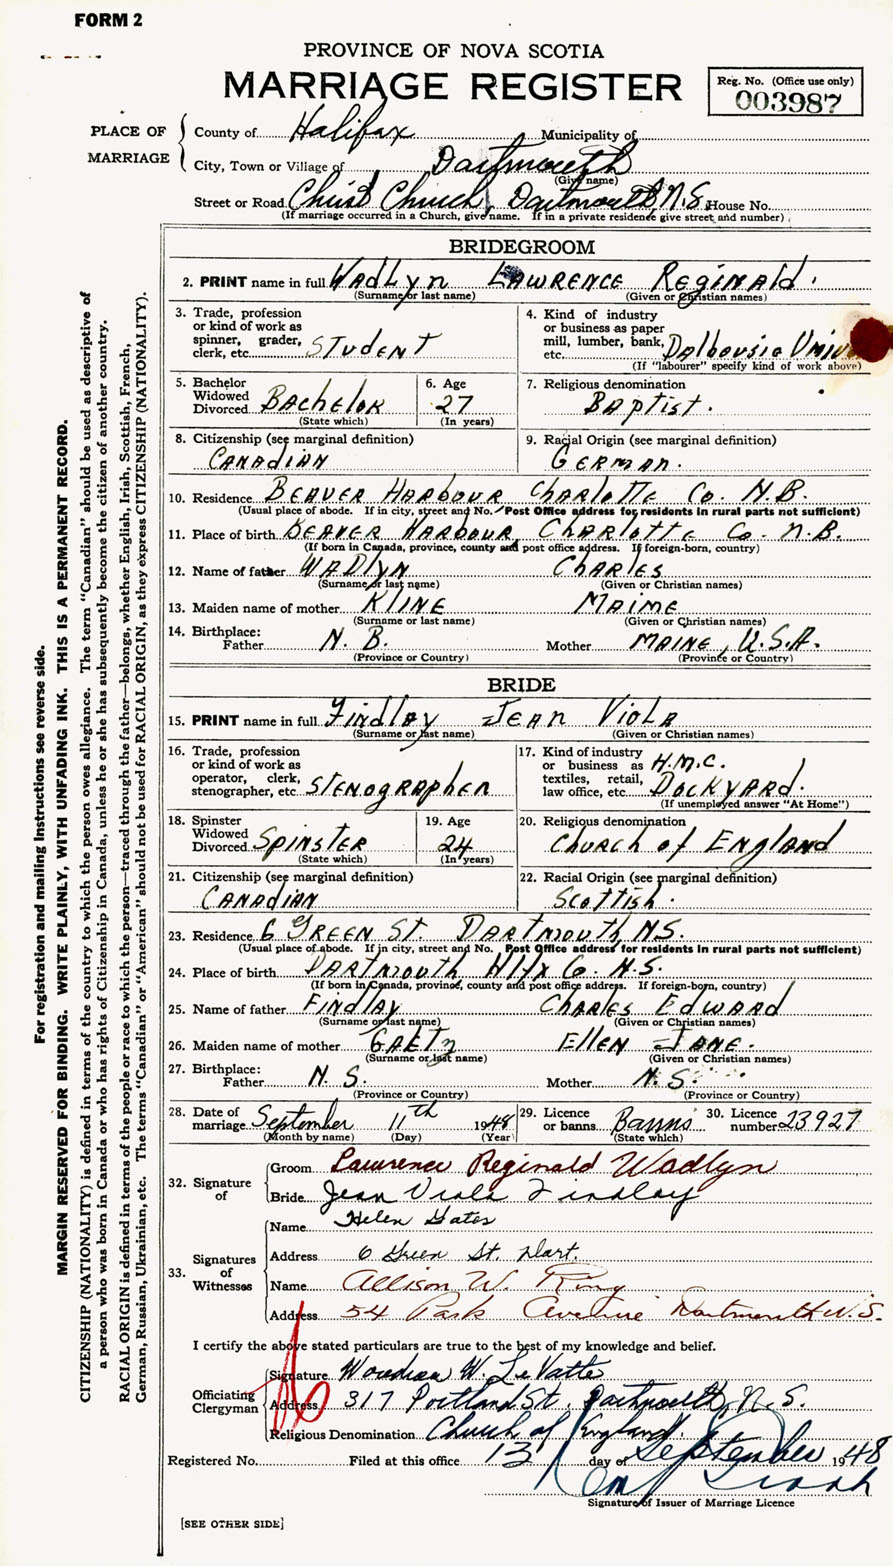 FORM 2
PROVINCE OF NOVA SCOTIA
MARRIAGE REGISTER
Reg. No. (Office use only)
003987
PLACE OF MARRIAGE
County of Halifax Municipality of
City, Town or Village of Dartmouth
(Give name)
Street or Road Christ Church, Dartmouth, N.S. House No.
(If marriage occurred in a Church, give name. If in a private residence give street and number)
BRIDEGROOM
2. PRINT name in full Wadlyn Lawrence Reginald.
(Surname or last name) (Given or Christian names)
3. Trade, profession or kind of work as spinner, grader, clerk, etc. Student
4. Kind of industry or business as paper mill, lumber, bank, etc. Dalhousie Unive
(If "labourer" specify kind of work above)
5. Bachelor Widowed Divorced Bachelor
(State which)
6. Age 27
(In years)
7. Religious denomination
Baptist.
8. Citizenship (see marginal definition)
Canadian
9. Racial Origin (see marginal definition)
German.
10. Residence Beaver Harbour Charlotte Co. N.B.
(Usual place of abode. If in city, street and No. Post Office address for residents in rural parts not sufficient)
11. Place of birth Beaver Harbour, Charlotte Co. N.B.
(If born in Canada, province, county and post office address. If foreign-born, country)
12. Name of father Wadlyn Charles
(Surname or last name) (Given or Christian names)
13. Maiden name of mother Kline Maime
(Surname or last name) (Given or Christian names)
14. Birthplace:
Father N.B. Mother Maine, U.S.A.
(Province or Country) (Province or Country)
BRIDE
15. PRINT name in full Findlay Jean Viola
(Surname or last name) (Given or Christian names)
16. Trade, profession or kind of work as operator, clerk, stenographer, etc. Stenographer
17. Kind of industry or business as textiles, retail, law office, etc. H.M.C. Dockyard.
(If unemployed answer "At Home")
18. Spinster Widowed Divorced Spinster
(State which)
19. Age 24
(In years)
20. Religious denomination
Church of England
21. Citizenship (see marginal definition)
Canadian
22. Racial Origin (see marginal definition)
Scottish.
23. Residence 6 Green St. Dartmouth, N.S.
(Usual place of abode. If in city, street and No. Post Office address for residents in rural parts not sufficient)
24. Place of birth Dartmouth Hlfx Co. N.S.
(If born in Canada, province, county and post office address. If foreign-born, country)
25. Name of father Findlay Charles Edward
(Surname or last name) (Given or Christian names)
26. Maiden name of mother Gaetz Ellen Jane.
(Surname or last name) (Given or Christian names)
27. Birthplace:
Father N.S. Mother N.S.
(Province or Country) (Province or Country)
28. Date of marriage September 11th 1948
(Month by name) (Day) (Year)
29. Licence or banns Banns
(State which)
30. Licence number 23927
32. Signature of
Groom Lawrence Reginald Wadlyn
Bride Jean Viola Findlay
33. Signatures of Witnesses
Name Helen Gates
Address 6 Green St. Dart.
Name Allison W. King
Address 54 Park Avenue Dartmouth N.S.
I certify the above stated particulars are true to the best of my knowledge and belief.
Officiating Clergyman
Signature W. LeVatte
Address 317 Portland St. Dartmouth, N.S.
Religious Denomination Church of England.
Registered No. Filed at this office 13 day of September 1948
Signature of Issuer of Marriage Licence
[SEE OTHER SIDE]
For registration and mailing instructions see reverse side.
MARGIN RESERVED FOR BINDING. WRITE PLAINLY, WITH UNFADING INK. THIS IS A PERMANENT RECORD.
CITIZENSHIP (NATIONALITY) is defined in terms of the country to which the person owes allegiance. The term "Canadian" should be used as descriptive of
a person who was born in Canada or who has rights of Citizenship in Canada, unless he or she has subsequently become the citizen of another country.
RACIAL ORIGIN is defined in terms of the people or race to which the person—traced through the father—belongs, whether English, Irish, Scottish, French,
German, Russian, Ukrainian, etc. The terms "Canadian" or "American" should not be used for RACIAL ORIGIN, as they express CITIZENSHIP (NATIONALITY).